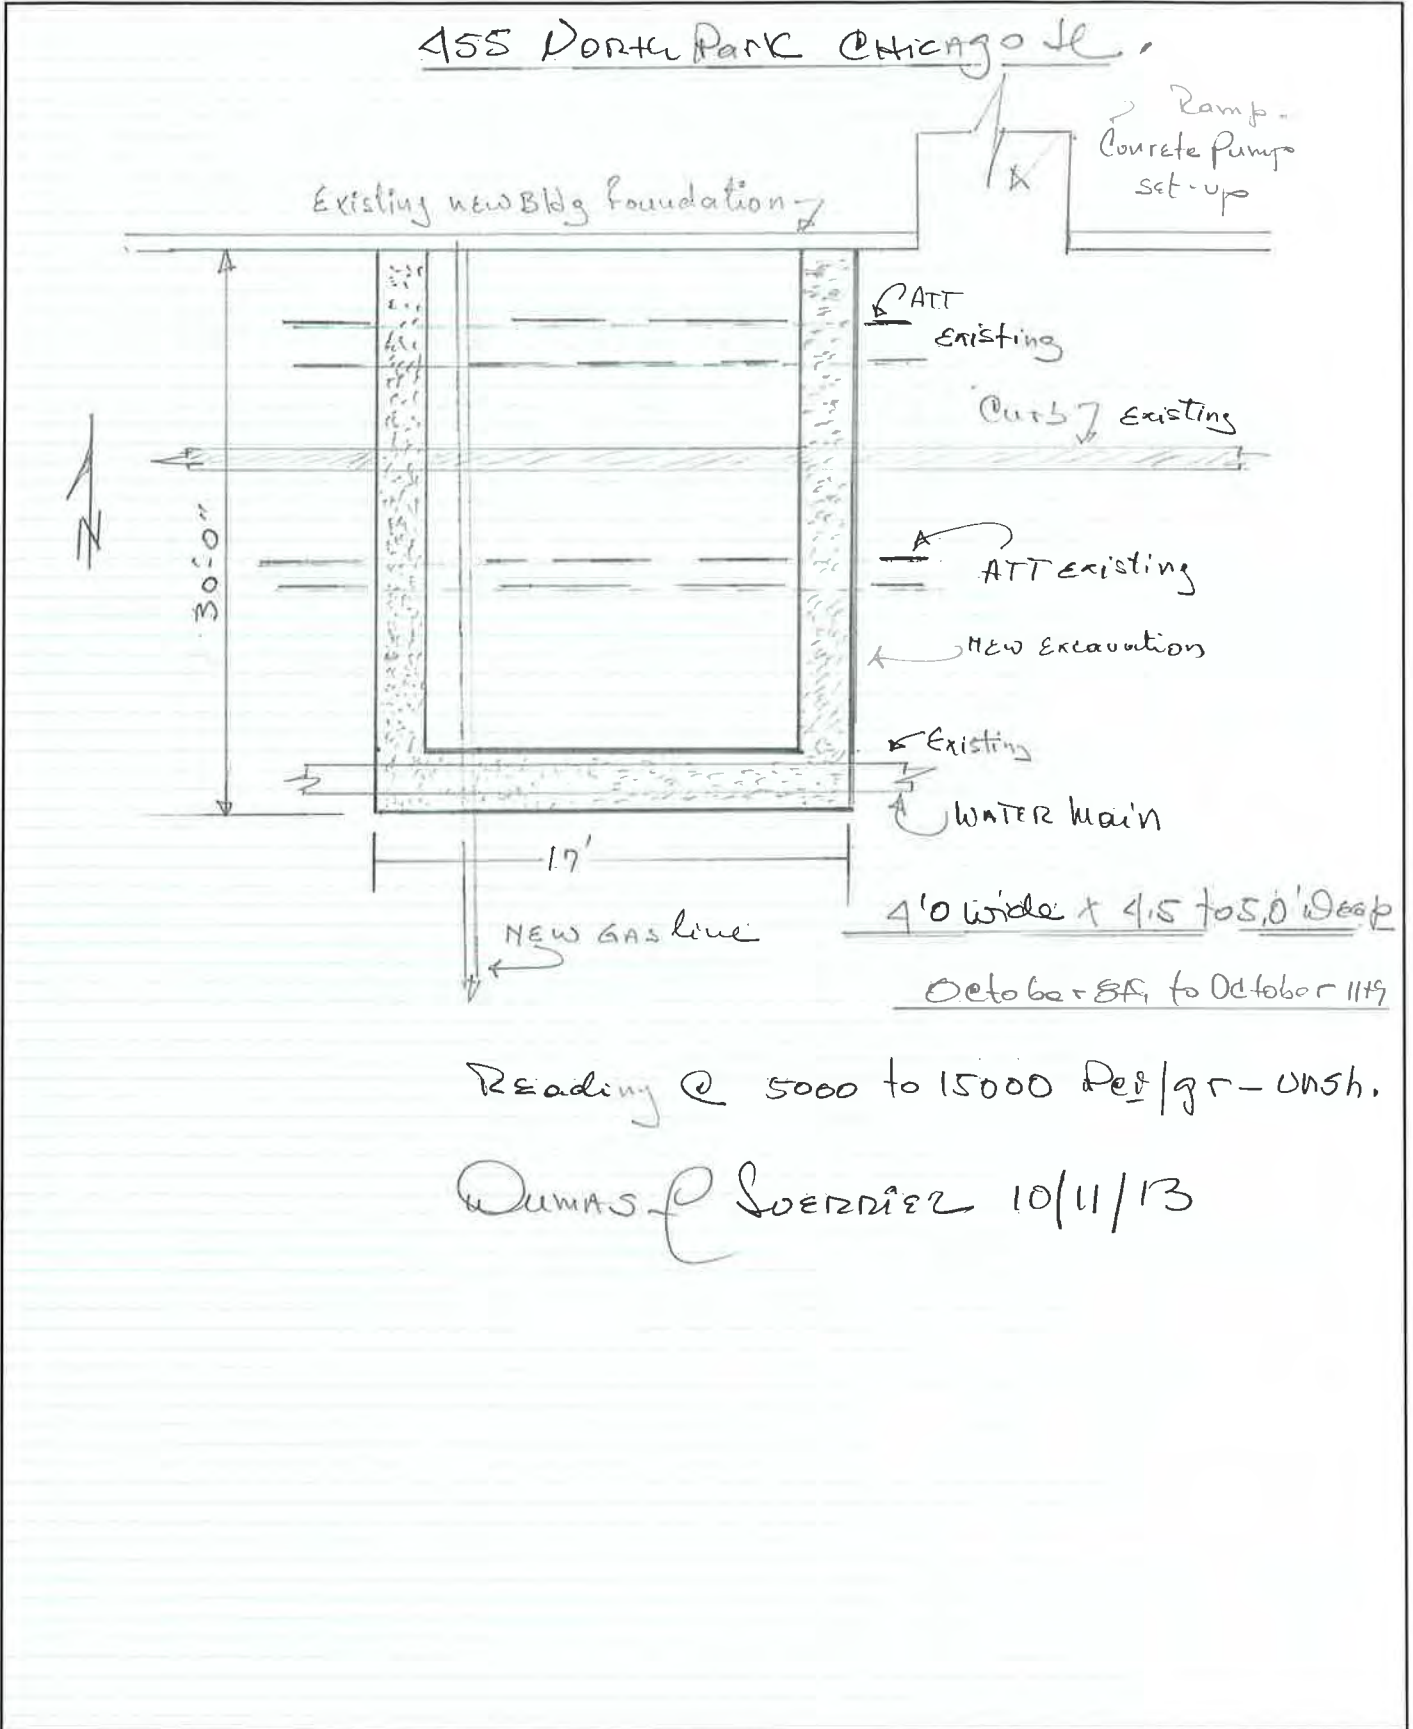 455 North Park Chicago Il.
Ramp.
Conrete Pump
set-up
Existing new Bldg foundation
ATT
Existing
Curb Existing
N
30'-0"
ATT Existing
New Excavation
Existing
WATER Main
17'
4'0 wide x 4.5 to 5.0' Deep
NEW GAS line
October 8th to October 11th
Reading @ 5000 to 15000 /gr - unsh.
Dumas 10/11/13